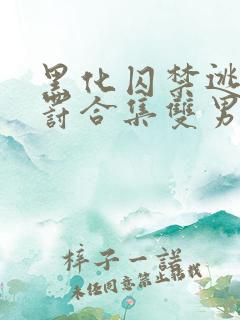 黑化囚禁逃
罰合集雙男
梓子一諾
未经同意禁止转载